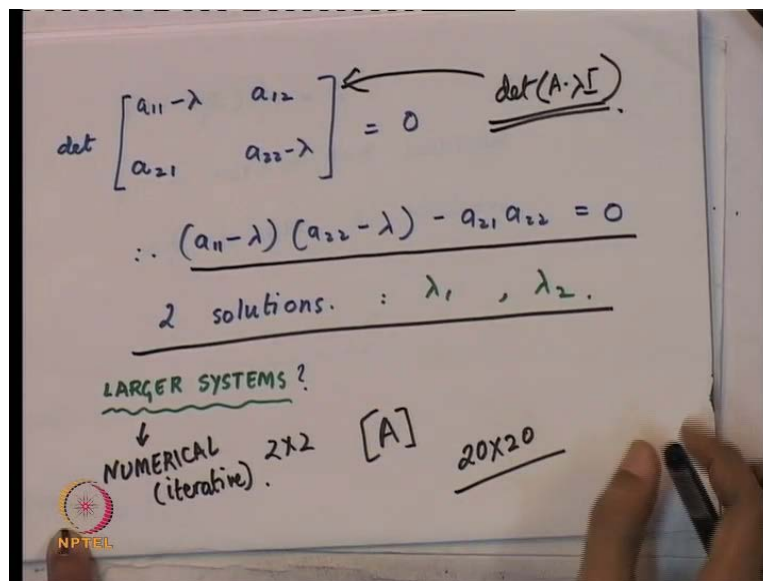 det [ a₁₁-λ a₁₂ a₂₁ a₂₂-λ ] = 0
det(A-λI).
∴ (a₁₁-λ) (a₂₂-λ) - a₂₁ a₂₂ = 0
2 solutions. : λ₁ , λ₂.
LARGER SYSTEMS ?
↓
NUMERICAL (iterative). 2x2 [A] 20x20
NPTEL